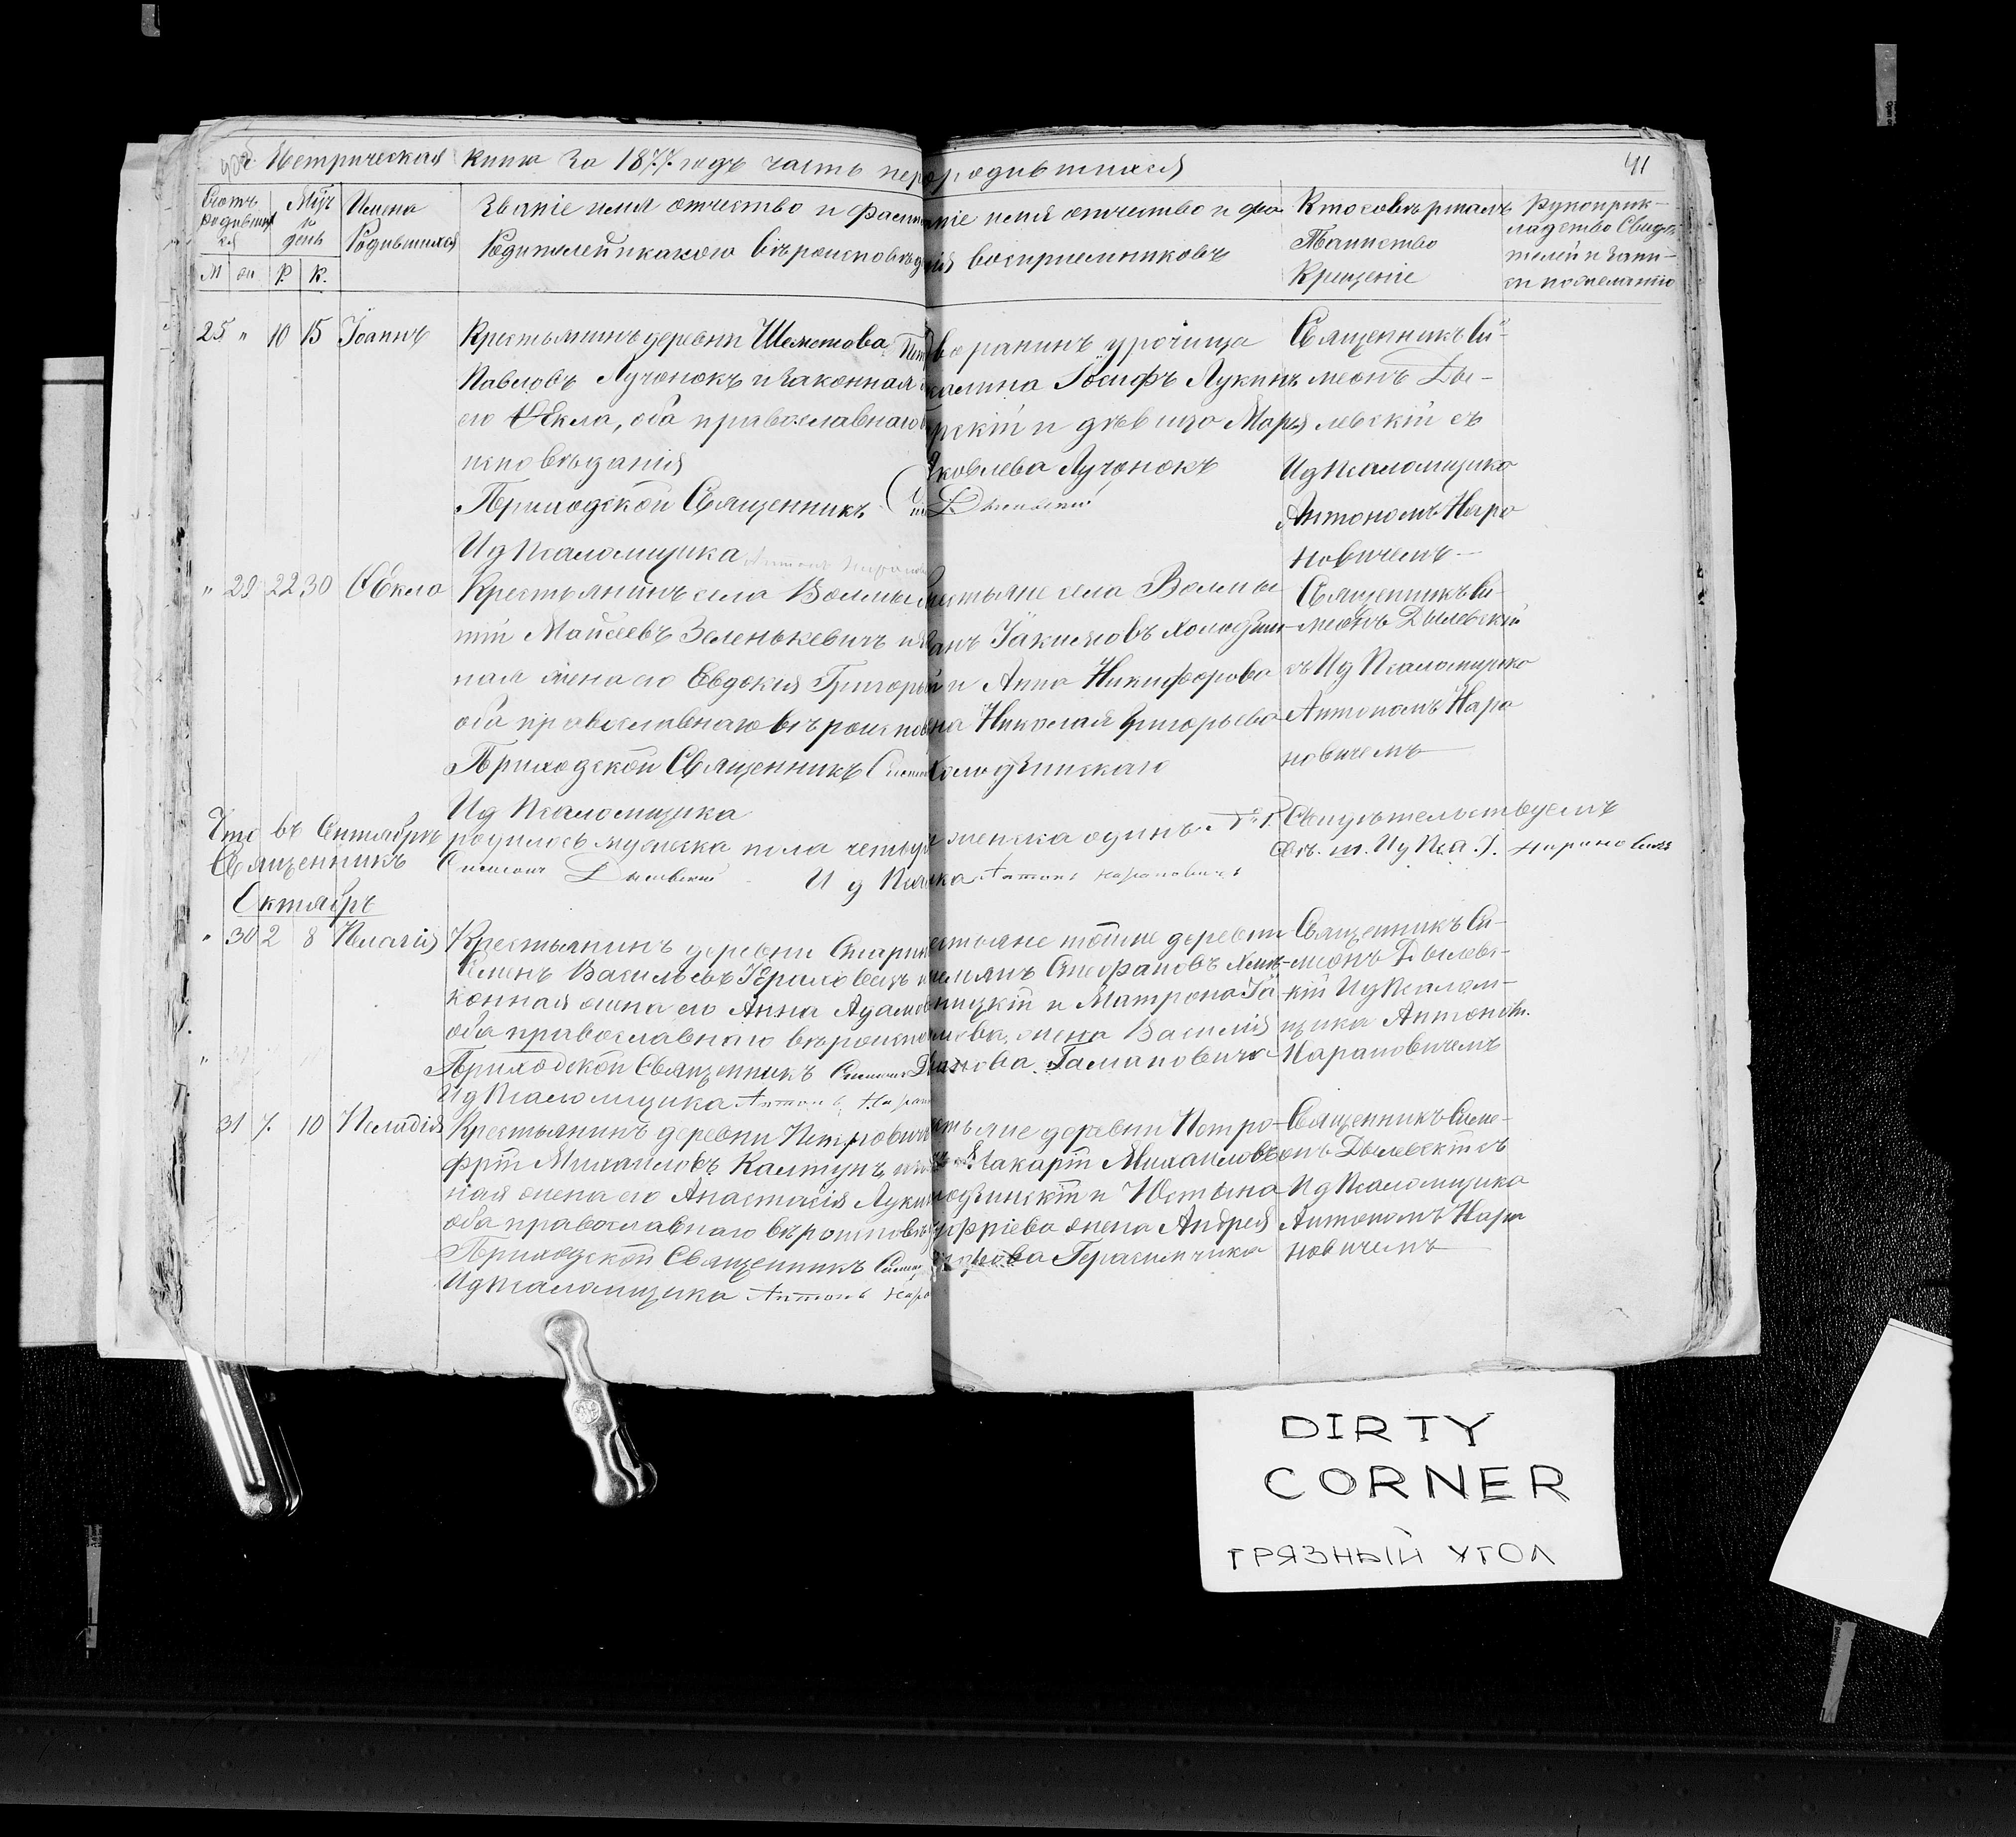 Метрическая книга за 1877 годъ часть пер
о родившихся
41
Счотъ родившихся
Мцъ и день
Имена Родившихся
Званіе имя отчество и фами
Родителей и какого вѣроисповѣд
аніе имя отчество и фа
воспріемниковъ
Кто совѣршалъ
Таинство
Крещеніе
Рукоприк-
ладство Свидѣ-
телей и запи-
си по желанію
М ж Р. К.
25 " 10 15 Іоаннъ
Крестьянинъ деревни Шеметова
Павловъ Лучонокъ и законная
его Ѳекла, оба православнаго
исповѣданія
Приходской Священникъ
Ид Псаломщика
воранинъ урочища
Іосифъ Лукинъ
и дѣвица Марія
Яковлева Лучонокъ
Дылевскій
Священникъ Си-
меонъ Ды-
левскій съ
Ид Псаломщика
Антономъ Наро
новичемъ
" 29 22 30 Ѳекла
Крестьянинъ села Волмы
тій Моисеевъ Зеленькевичъ и
ная жена его Евдокія Григорь
оба православнаго вѣроиспов
Приходской Священникъ
Ид Псаломщика
естьяне села Волмы
Іакимовъ Холодин
и Анна Никифорова
на Николая Григорьева
Холодинскаго
Священникъ Си-
меонъ Дылевскій
съ Ид Псаломщика
Антономъ Наро
новичемъ
Что въ Сентябрѣ родилось мужеска пола четыре
женска одинъ № 1. Свидѣтельствуемъ
Священникъ Симеонъ Дылевскій И д Псал
ка Антонъ Нароновичъ
Октябрь
" 30 2 8 Пелагія
Крестьянинъ деревни Старин
Семенъ Васильевъ и
конная жена его Анна Адамов
оба православнаго вѣроиспо
Приходской Священникъ Симеонъ
Ид Псаломщика Антонъ Наро
естьяне тойже деревни
Стефановъ
ницкій и Матрона
жена Василія
Гамановича
Священникъ Си-
меонъ Дылевс-
кій Ид Псалом-
щика Антоном.
Нароновичемъ
31 7. 10 Пелагія
Крестьянинъ деревни Петровичъ
Михаиловъ Калтунъ и
ная жена его Анастасія Лукин
оба православнаго вѣроисповѣ
Приходской Священникъ
Ид Псаломщика Антонъ Наро
стьяне деревни Петро-
Макарій Михаиловъ
лодзинскій и Юстына
жена Андрея
Герасимчика
Священникъ Симе-
онъ Дылевскій съ
Ид Псаломщика
Антономъ Наро
новичемъ
DIRTY
CORNER
ГРЯЗНЫЙ УГОЛ